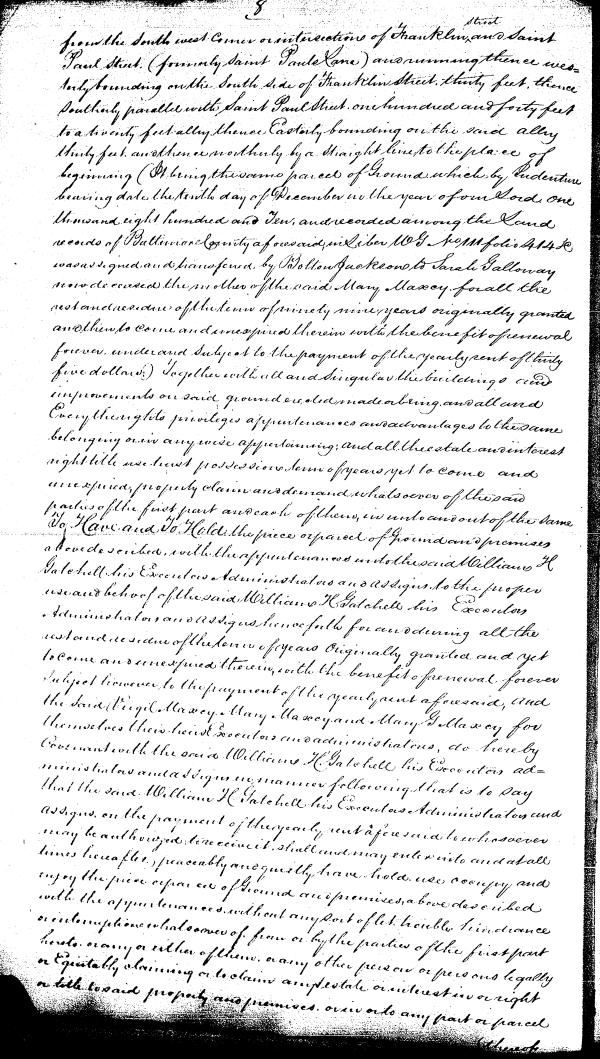 8
from the South west Corner or intersections of Franklin street and Saint
Paul Street. (formerly Saint Pauls Lane) and running thence wes=
terly bounding on the South side of Franklin Street. thirty feet, thence
Southerly parallel with Saint Paul Street. one hundred and forty feet
to a twenty feet alley thence Easterly bounding on the said alley
thirty feet. and thence northerly by a straight line to the place of
beginning (It being the same parcel of Ground which by Indenture
bearing date the tenth day of December in the year of our Lord one
thousand eight hundred and Ten, and recorded among the Land
records of Baltimore County aforesaid, in Liber WG No 111 folio 414 &c
was assigned and transferred by Bolton Jackson to Sarah Galloway
now deceased the mother of the said Mary Maxcy for all the
rest and residue of the term of ninety nine years originally granted
and then to come and unexpired therein with the benefit of renewal
forever under and Subject to the payment of the yearly rent of thirty
five dollars.) Together with all and Singular the buildings and
improvements on said ground erected made or being, and all and
Every the rights privileges appurtenances and advantages to the same
belonging or in any wise appertaining; and all the estate and interest
right title use trust possession term of years yet to come and
unexpired, property claim and demand whatsoever of the said
parties of the first part and each of them, in unto and out of the same
To Have and To Hold the piece or parcel of Ground and premises
above described, with the appurtenances unto the said William H
Gatchell his Executors Administrators and assigns to the proper
use and behoof of the said William H Gatchell his Executors
Administrators and assigns, henceforth for and during all the
rest and residue of the term of years Originally granted and yet
to come and unexpired therein, with the benefit of renewal forever
Subject however to the payment of the yearly rent aforesaid, and
the said Virgil Maxcy Mary Maxcy and Mary G Maxcy for
themselves their heirs Executors and administrators, do hereby
Covenant with the said William H Gatchell his Executors ad=
ministrators and assigns in manner following that is to say
that the said William H Gatchell his Executors Administrators and
assigns, on the payment of the yearly rent aforesaid to whosoever
may be authorized to receive it, shall and may enter into and at all
times hereafter, peaceably and quietly have hold use occupy and
enjoy the piece or parcel of Ground and premises above described
with the appurtenances, without any sort of let trouble hindrance
or interruption whatsoever of from or by the parties of the first part
hereto. or any or either of them. or any other person or persons legally
or Equitably claiming or to claim any estate or interest in or right
or title to said property and premises. or in or to any part or parcel
thereof